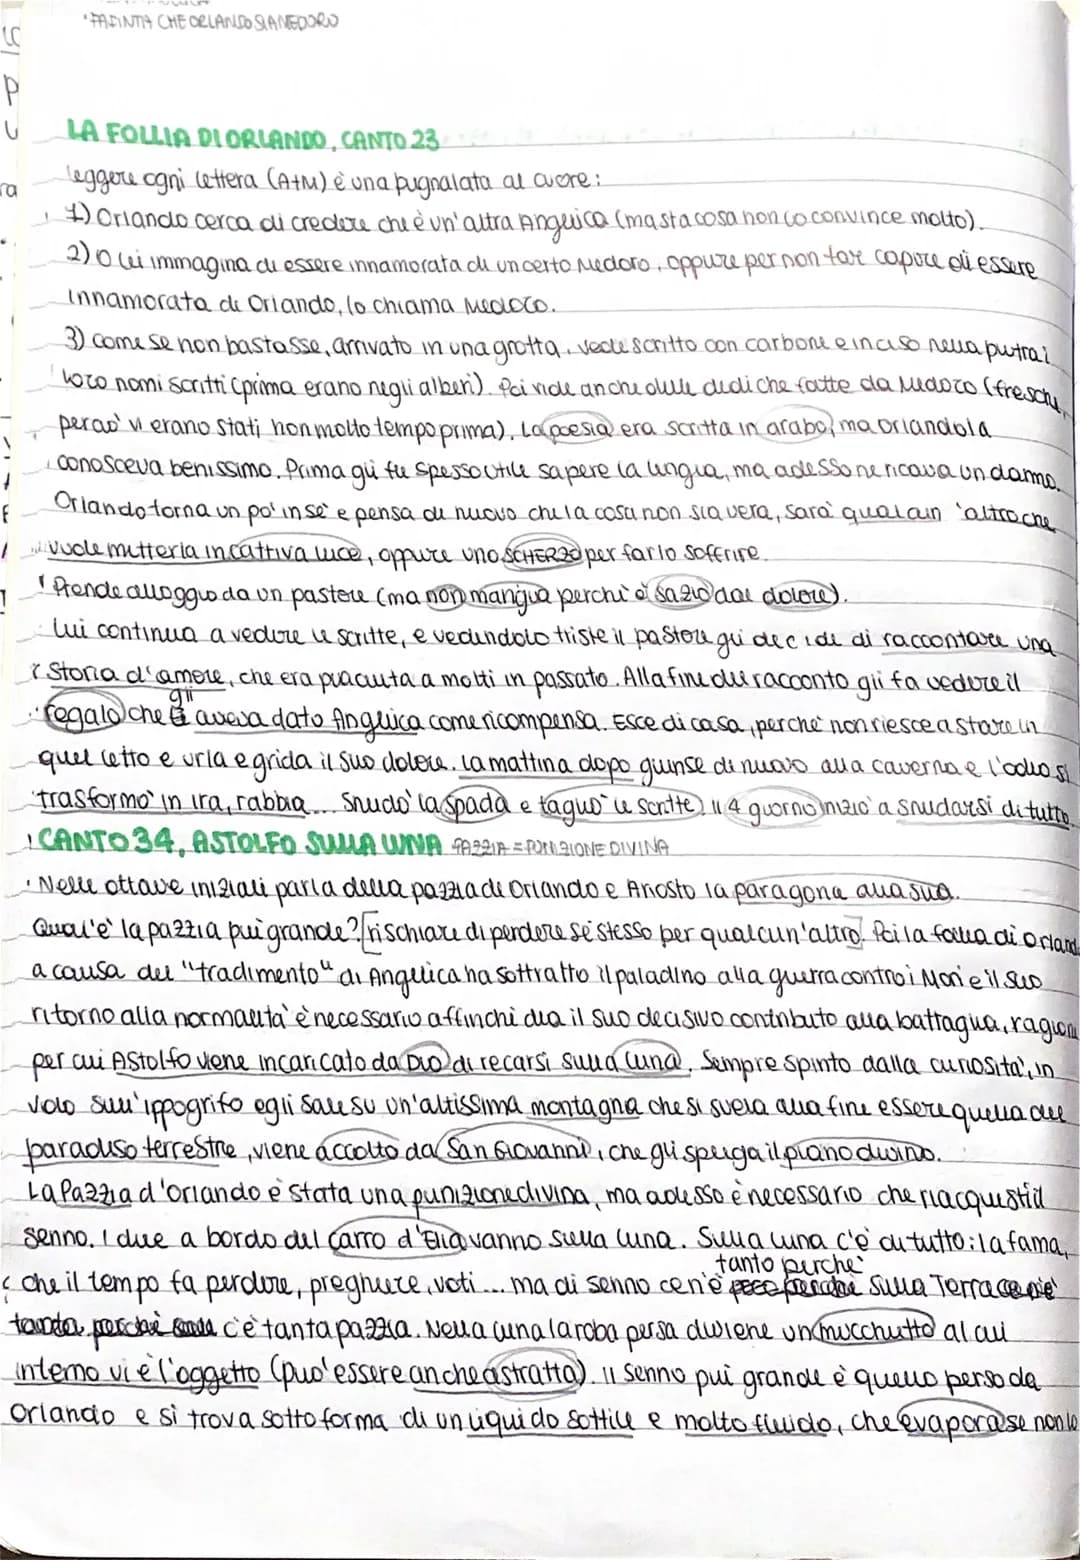 FA FINTA CHE ORLANDO SIA MEDORO
LA FOLLIA DI ORLANDO, CANTO 23
leggere ogni lettera (A+M) è una pugnalata al cuore:
1) Orlando cerca di credere che è un'altra Angelica (ma sta cosa non lo convince molto).
2) O lei immagina di essere innamorata di un certo Medoro, oppure per non far capire di essere
innamorata di Orlando, lo chiama Medoro.
3) come se non bastasse, arrivato in una grotta, vede scritto con carbone e inciso nella pietra i
loro nomi scritti (prima erano negli alberi). Poi vide anche delle dediche fatte da Medoro (fresche,
perciò vi erano stati non molto tempo prima). La poesia era scritta in arabo, ma Orlando la
conosceva benissimo. Prima gli fu spesso utile sapere la lingua, ma adesso ne ricava un danno.
Orlando torna un po' in sè e pensa di nuovo che la cosa non sia vera, sarà qualcun'altro che
vuole metterla in cattiva luce, oppure uno SCHERZO per farlo soffrire.
Prende alloggio da un pastore (ma non mangia perchè è sazio dal dolore).
Lui continua a vedere le scritte, e vedendolo triste il pastore gli decide di raccontare una
storia d'amore, che era piaciuta a molti in passato. Alla fine del racconto gli fa vedere il
regalo che gli aveva dato Angelica come ricompensa. Esce di casa, perchè non riesce a stare in
quel letto e urla e grida il suo dolore. La mattina dopo giunse di nuovo alla caverna e l'odio si
trasformò in ira, rabbia... Snudò la spada e tagliò le scritte. Il 4 giorno iniziò a snudarsi di tutto.
CANTO 34, ASTOLFO SULLA LUNA PAZZIA = PUNIZIONE DIVINA
Nelle ottave iniziali parla della pazzia di Orlando e Ariosto la paragona alla sua.
Qual'è la pazzia più grande? [rischiare di perdere sè stesso per qualcun'altro]. Poi la follia di Orland
a causa del "tradimento" di Angelica ha sottratto il paladino alla guerra contro i Mori e il suo
ritorno alla normalità è necessario affinchi dia il suo decisivo contributo alla battaglia, ragione
per cui Astolfo viene incaricato da DIO di recarsi sulla Luna. Sempre spinto dalla curiosità, in
volo sull'ippogrifo egli sale su un'altissima montagna che si svela alla fine essere quella del
paradiso terrestre, viene accolto da San Giovanni, che gli spiega il piano divino.
La Pazzia d'Orlando è stata una punizione divina, ma adesso è necessario che riacquisti il
senno. I due a bordo del carro d'Elia vanno sulla luna. Sulla luna c'è di tutto: la fama,
tanto perchè
che il tempo fa perdere, preghiere, voti... ma di senno cen'è sulla Terra
c'è tanta pazzia. Nella luna la roba persa diviene un mucchietto al cui
interno vi è l'oggetto (può essere anche astratta). Il senno più grande è quello perso da
Orlando e si trova sotto forma di un liquido sottile e molto fluido, che evapora se non lo